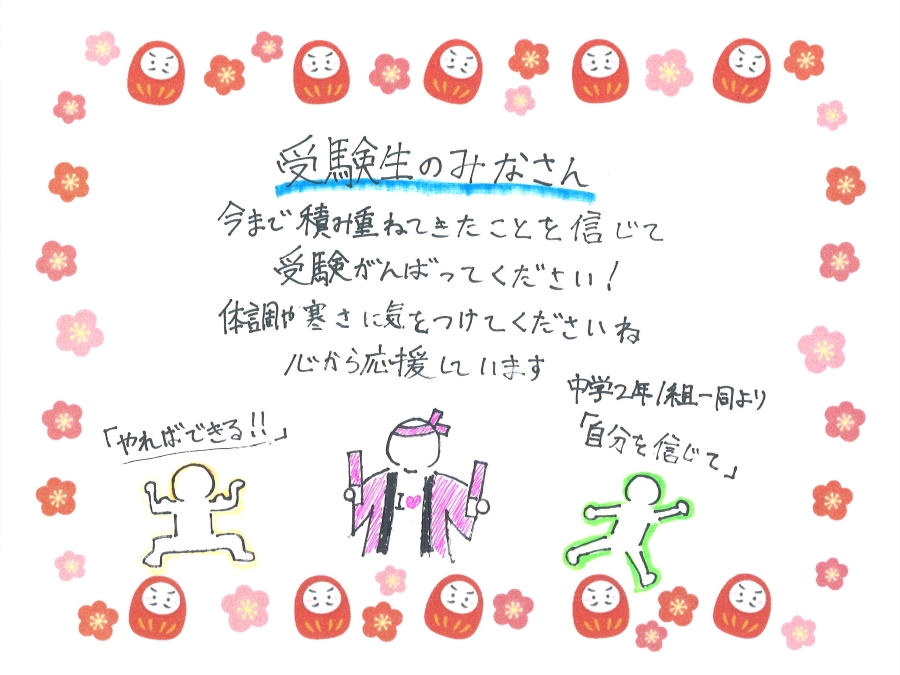 受験生のみなさん
今まで積み重ねてきたことを信じて
受験がんばってください!
体調や寒さに気をつけてくださいね
心から応援しています
中学2年1組一同より
「やればできる!!」
「自分を信じて」
I